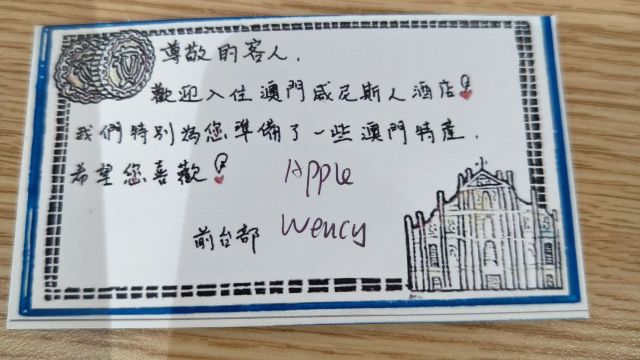 尊敬的客人，
歡迎入住澳門威尼斯人酒店！
我們特別為您準備了一些澳門特產，
希望您喜歡！
Apple
前台部 Wency